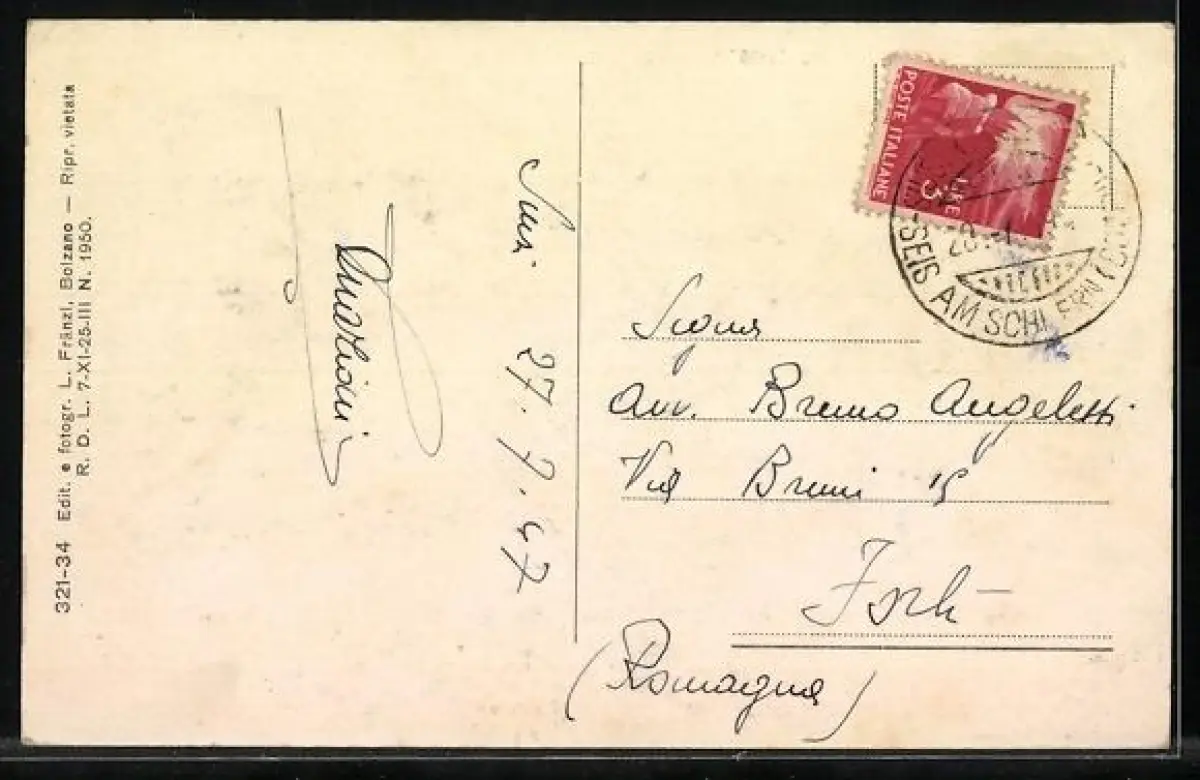 321-34 Edit. e fotogr. L. Fränzl, Bolzano — Ripr. vietata
R. D. L. 7-XI-25-III N. 1950.
27. 7. 47
POSTE ITALIANE
LIRE 3
SEIS AM SCHLERN
Avv. Bruno Angeletti
Via Bruni 15
Forlì
(Romagna)